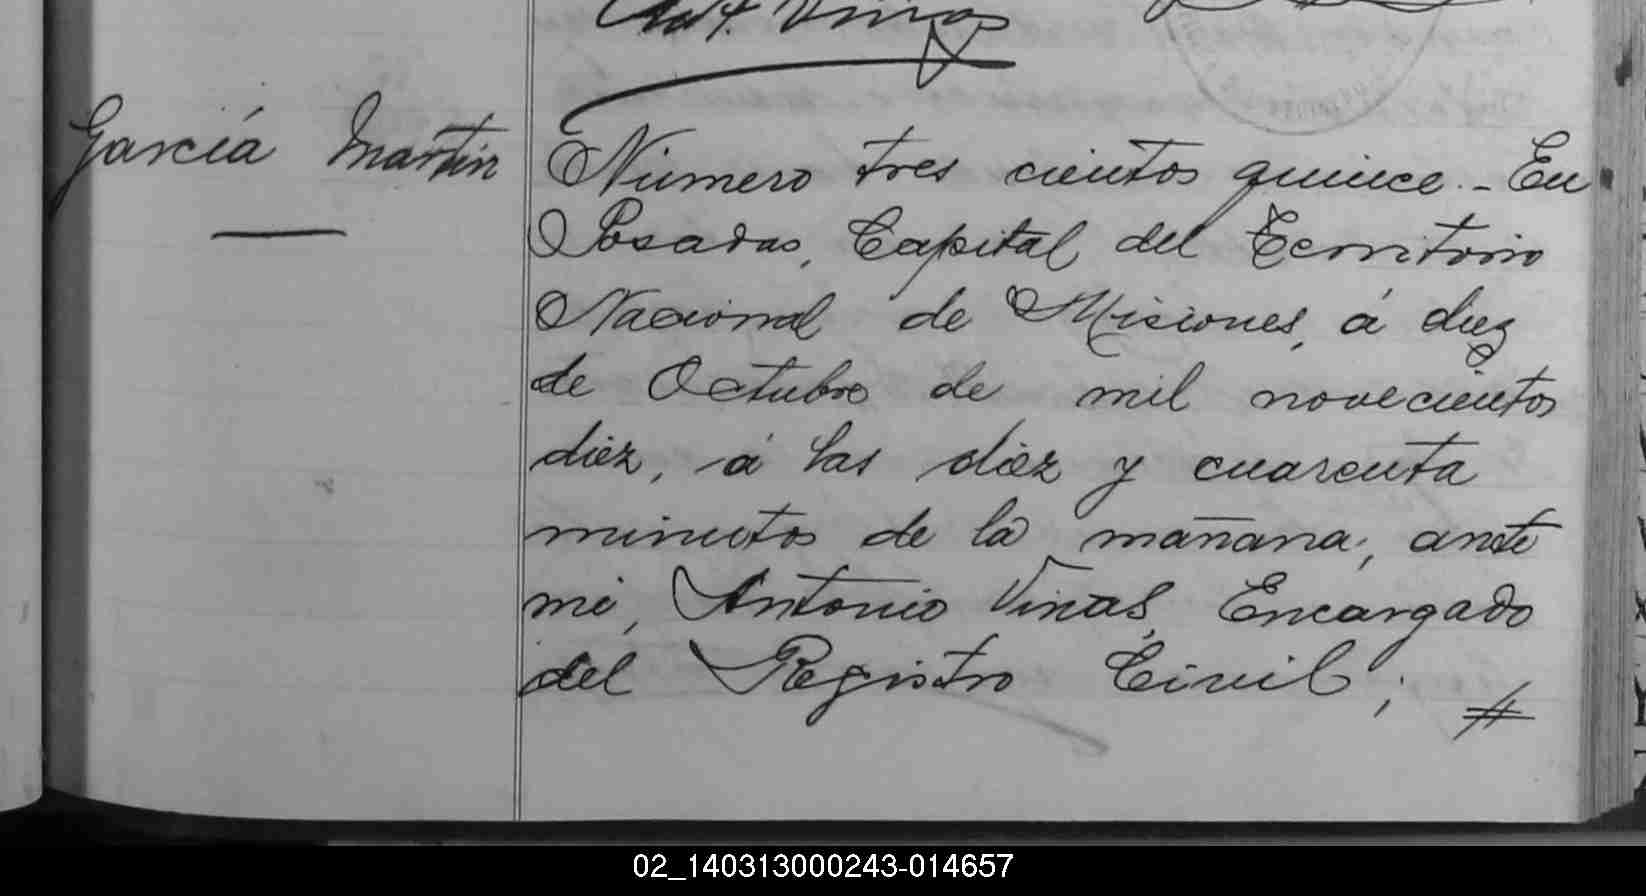 Ant. Viñas
García Martin
Número tres cientos quince. - En
Posadas, Capital del Territorio
Nacional de Misiones, á diez
de Octubre de mil novecientos
diez, á las diez y cuarenta
minutos de la mañana, ante
mi, Antonio Viñas, Encargado
del Registro Civil; #
02_140313000243-014657